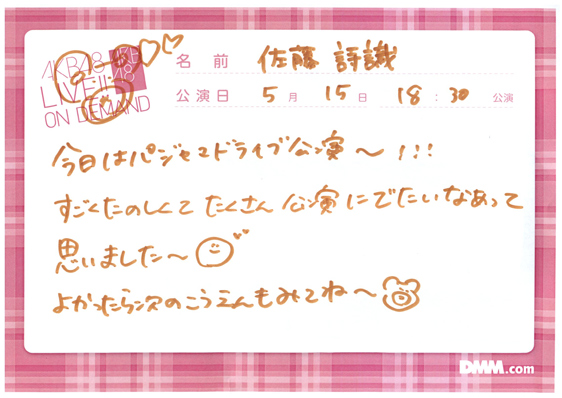 AKB48 LIVE!! ON DEMAND
名前 佐藤 詩識
公演日 5月 15日 18:30 公演
今日はパジャマドライブ公演〜!!!
すごくたのしくてたくさん公演にでたいなあって
思いました〜
よかったら次のこうえんもみてね〜
DMM.com